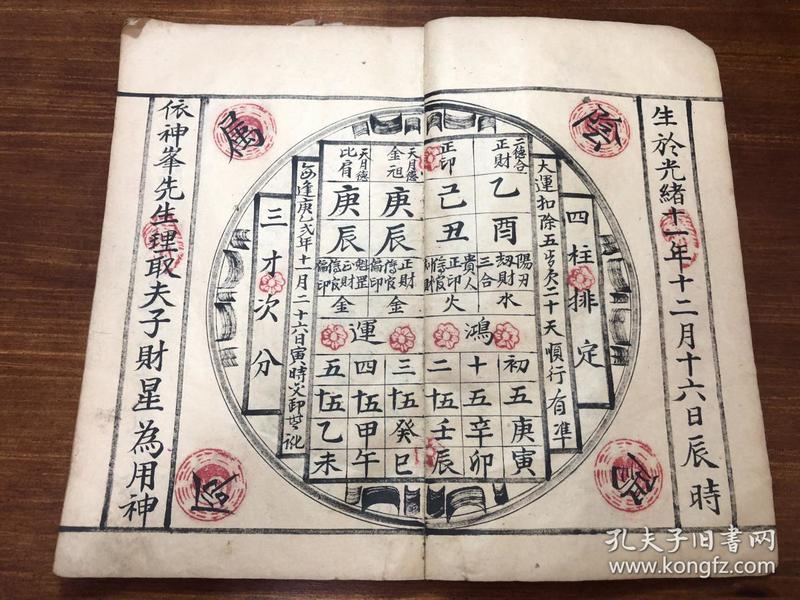 生於光緒十一年十二月十六日辰時
四柱排定
大運扣除五岁欠二十天順行有準
二德合 正財 乙酉 陽刃 劫財 三合 水
正印 己丑 貴人 正印 傷官 火
天月德 金祖 庚辰 正財 傷官 偏印 金
天月德 比肩 庚辰 魁罡 正財 傷官 偏印 金
鴻運
初五庚寅
十五辛卯
二十五壬辰
三十五癸巳
四十五甲午
五十五乙未
每逢庚乙弍年十一月二十六日寅時交卸
三才次分
依神峯先生理取夫子財星為用神
孔夫子旧書网
www.kongfz.com